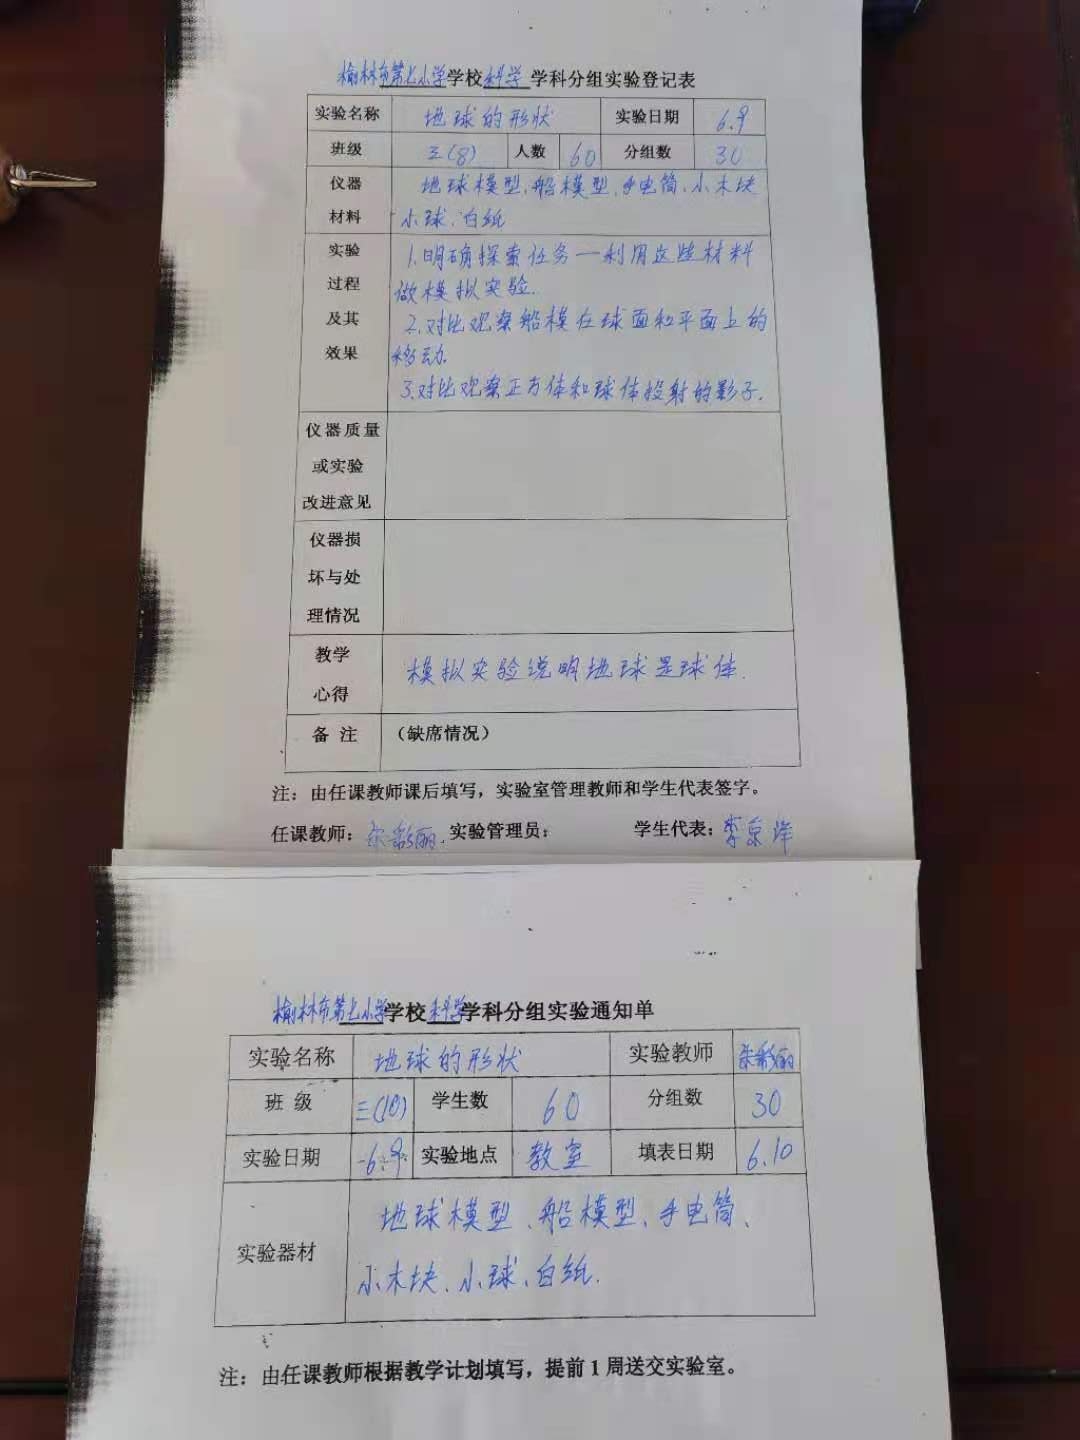 榆林市第七小学学校科学学科分组实验登记表
实验名称 地球的形状 实验日期 6.9
班级 三(8) 人数 60 分组数 30
仪器材料 地球模型、船模型、手电筒、小木块
小球、白纸
实验过程及其效果 1.明确探索任务—利用这些材料
做模拟实验.
2.对比观察船模在球面和平面上的
移动.
3.对比观察正方体和球体投射的影子.
仪器质量或实验改进意见
仪器损坏与处理情况
教学心得 模拟实验说明地球是球体.
备 注 (缺席情况)
注：由任课教师课后填写，实验室管理教师和学生代表签字。
任课教师： 彩丽. 实验管理员： 学生代表：李京
榆林市第七小学学校科学学科分组实验通知单
实验名称 地球的形状 实验教师 彩丽
班 级 三(10) 学生数 60 分组数 30
实验日期 6.9 实验地点 教室 填表日期 6.10
实验器材 地球模型、船模型、手电筒、
小木块、小球、白纸.
注：由任课教师根据教学计划填写，提前1周送交实验室。